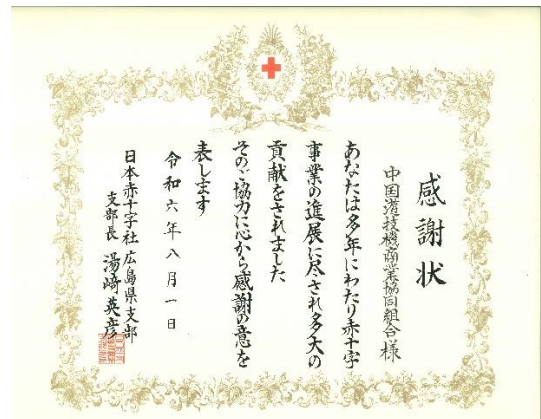 感謝状
中国遊技機商業協同組合様
あなたは多年にわたり赤十字
事業の進展に尽され多大の
貢献をされました
そのご協力に心から感謝の意を
表します
令和六年八月一日
日本赤十字社広島県支部
支部長 湯﨑英彦